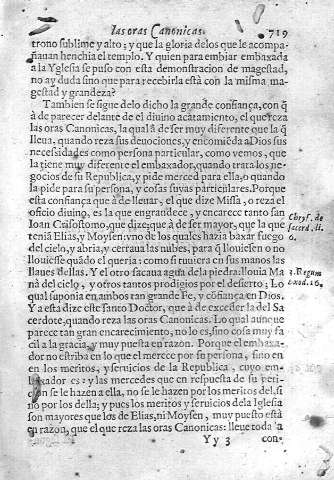 las oras Canonicas. 719
trono sublime y alto; y que la gloria delos que le acompa
ñauan henchia el templo. Y quien para embiar embaxada
a la Yglesia se puso con esta demostracion de magestad,
no ay duda sino que para recebirla està con la misma mages
tad y grandeza?
Tambien se sigue delo dicho la grande confiança, con q̄
à de parecer delante de el diuino acatamiento, el que reza
las oras Canonicas, la qual à de ser muy diferente que la q̄
lleua, quando reza sus deuociones, y encomiẽda a Dios sus
necessidades como persona particular, como vemos, que
la tiene muy diferente el embaxador, quando trata los ne-
gocios de su Republica, y pide merced para ella, o quando
la pide para su persona, y cosas suyas particulares. Porque
esta confiança que à de lleuar, el que dize Missa, o reza el
oficio diuino, es la que engrandece, y encarece tanto san
Ioan Crisostomo, que dize: que à de ser mayor, que la que
tenia Elias, y Moysen: vno de los quales hazia baxar fuego
del cielo, y abria, y cerraua las nubes, para q̄ llouiessen o no
llouiesse quãdo el queria: como si tuviera en sus manos las
llaues dellas. Y el otro sacaua agua de la piedra: llouia Ma
nà del cielo, y otros tantos prodigios por el desierto; Lo
qual suponia en ambos tan grande Fe, y cõfiança en Dios.
Y a esta dize este santo Doctor, que à de exceder la del Sa-
cerdote, quando reza las oras Canonicas. Lo qual aunque
parece tan gran encarecimiento, no lo es, sino cosa muy fa-
cil a la gracia, y muy puesta en razon. Porque el embaxa-
dor no estriba en lo que el merece por su persona, sino en
en los meritos, y seruicios de la Republica, cuyo em-
baxador es: y las mercedes que en respuesta de su peti-
cion se le hazen a ella, no se le hazen por los meritos del, si
no por los della; y pues los meritos y seruicios dela Iglesia
son mayores que los de Elias, ni Moysen, muy puesto està
en razon, que el que reza las oras Canonicas: lleue toda la
Yy 3 con-
Chrys. de
sacerd. li.
6.
3. Regum
Exod. 16.